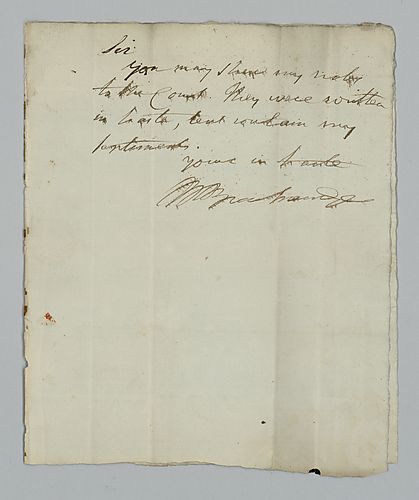 Sir
You may show my notes
to the Count. They were written
in haste, but contain my
sentiments.
yours in haste